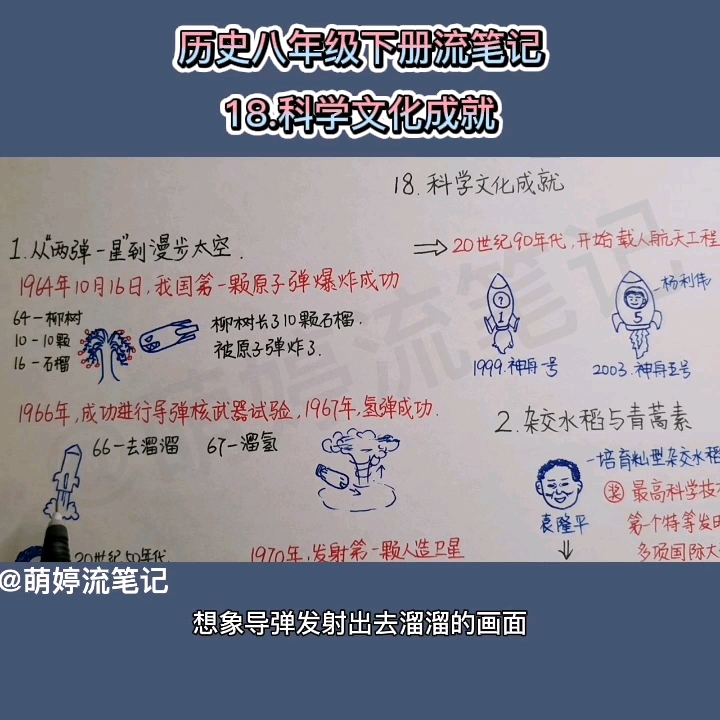 历史八年级下册流笔记
18.科学文化成就
18.科学文化成就
1.从“两弹一星”到漫步太空.
⇒20世纪90年代,开始载人航天工程
1964年10月16日,我国第一颗原子弹爆炸成功
64-柳树
10-10颗
16-石榴
柳树长了10颗石榴.
被原子弹炸了.
?
1
5
-杨利伟
1999.神舟一号
2003.神舟五号
1966年,成功进行导弹核武器试验,1967年,氢弹成功.
66-去溜溜
67-溜氢
2.杂交水稻与青蒿素
-培育籼型杂交水稻
奖 最高科学技
第一个特等发
多项国际大
袁隆平
20世纪50年代
1970年,发射第一颗人造卫星
萌婷流笔记
@萌婷流笔记
想象导弹发射出去溜溜的画面